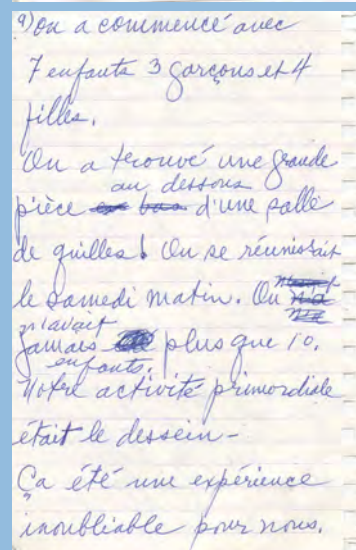 a) on a commencé avec
7 enfants 3 garçons et 4
filles.
On a trouvé une grande
au dessous
pièce en bas d'une salle
de quilles! On se réunissait
le samedi matin. On
n'avait
jamais plus que 10.
enfants.
Notre activité primordiale
était le dessein -
Ça été une expérience
inoubliable pour nous.